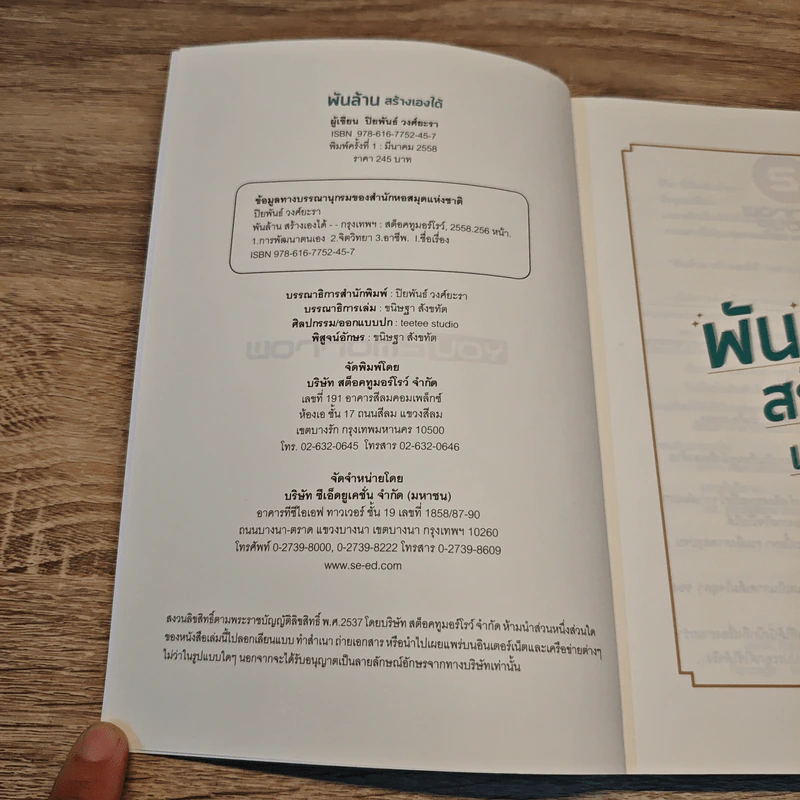 พันล้าน สร้างเองได้
ผู้เขียน ปิยพันธ์ วงศ์ยะรา
ISBN 978-616-7752-45-7
พิมพ์ครั้งที่ 1 : มีนาคม 2558
ราคา 245 บาท
ข้อมูลทางบรรณานุกรมของสำนักหอสมุดแห่งชาติ
ปิยพันธ์ วงศ์ยะรา
พันล้าน สร้างเองได้ - - กรุงเทพฯ : สต็อคทูมอร์โรว์, 2558.256 หน้า.
1.การพัฒนาตนเอง 2.จิตวิทยา 3.อาชีพ. I.ชื่อเรื่อง
ISBN 978-616-7752-45-7
บรรณาธิการสำนักพิมพ์ : ปิยพันธ์ วงศ์ยะรา
บรรณาธิการเล่ม : ขนิษฐา สังขทัต
ศิลปกรรม/ออกแบบปก : teetee studio
พิสูจน์อักษร : ขนิษฐา สังขทัต
จัดพิมพ์โดย
บริษัท สต็อคทูมอร์โรว์ จำกัด
เลขที่ 191 อาคารสีลมคอมเพล็กซ์
ห้องเอ ชั้น 17 ถนนสีลม แขวงสีลม
เขตบางรัก กรุงเทพมหานคร 10500
โทร. 02-632-0645 โทรสาร 02-632-0646
จัดจำหน่ายโดย
บริษัท ซีเอ็ดยูเคชั่น จำกัด (มหาชน)
อาคารทีซีไอเอฟ ทาวเวอร์ ชั้น 19 เลขที่ 1858/87-90
ถนนบางนา-ตราด แขวงบางนา เขตบางนา กรุงเทพฯ 10260
โทรศัพท์ 0-2739-8000, 0-2739-8222 โทรสาร 0-2739-8609
www.se-ed.com
สงวนลิขสิทธิ์ตามพระราชบัญญัติลิขสิทธิ์ พ.ศ.2537 โดยบริษัท สต็อคทูมอร์โรว์ จำกัด ห้ามนำส่วนหนึ่งส่วนใด
ของหนังสือเล่มนี้ไปลอกเลียนแบบ ทำสำเนา ถ่ายเอกสาร หรือนำไปเผยแพร่บนอินเตอร์เน็ตและเครือข่ายต่างๆ
ไม่ว่าในรูปแบบใดๆ นอกจากจะได้รับอนุญาตเป็นลายลักษณ์อักษรจากทางบริษัทเท่านั้น
พัน